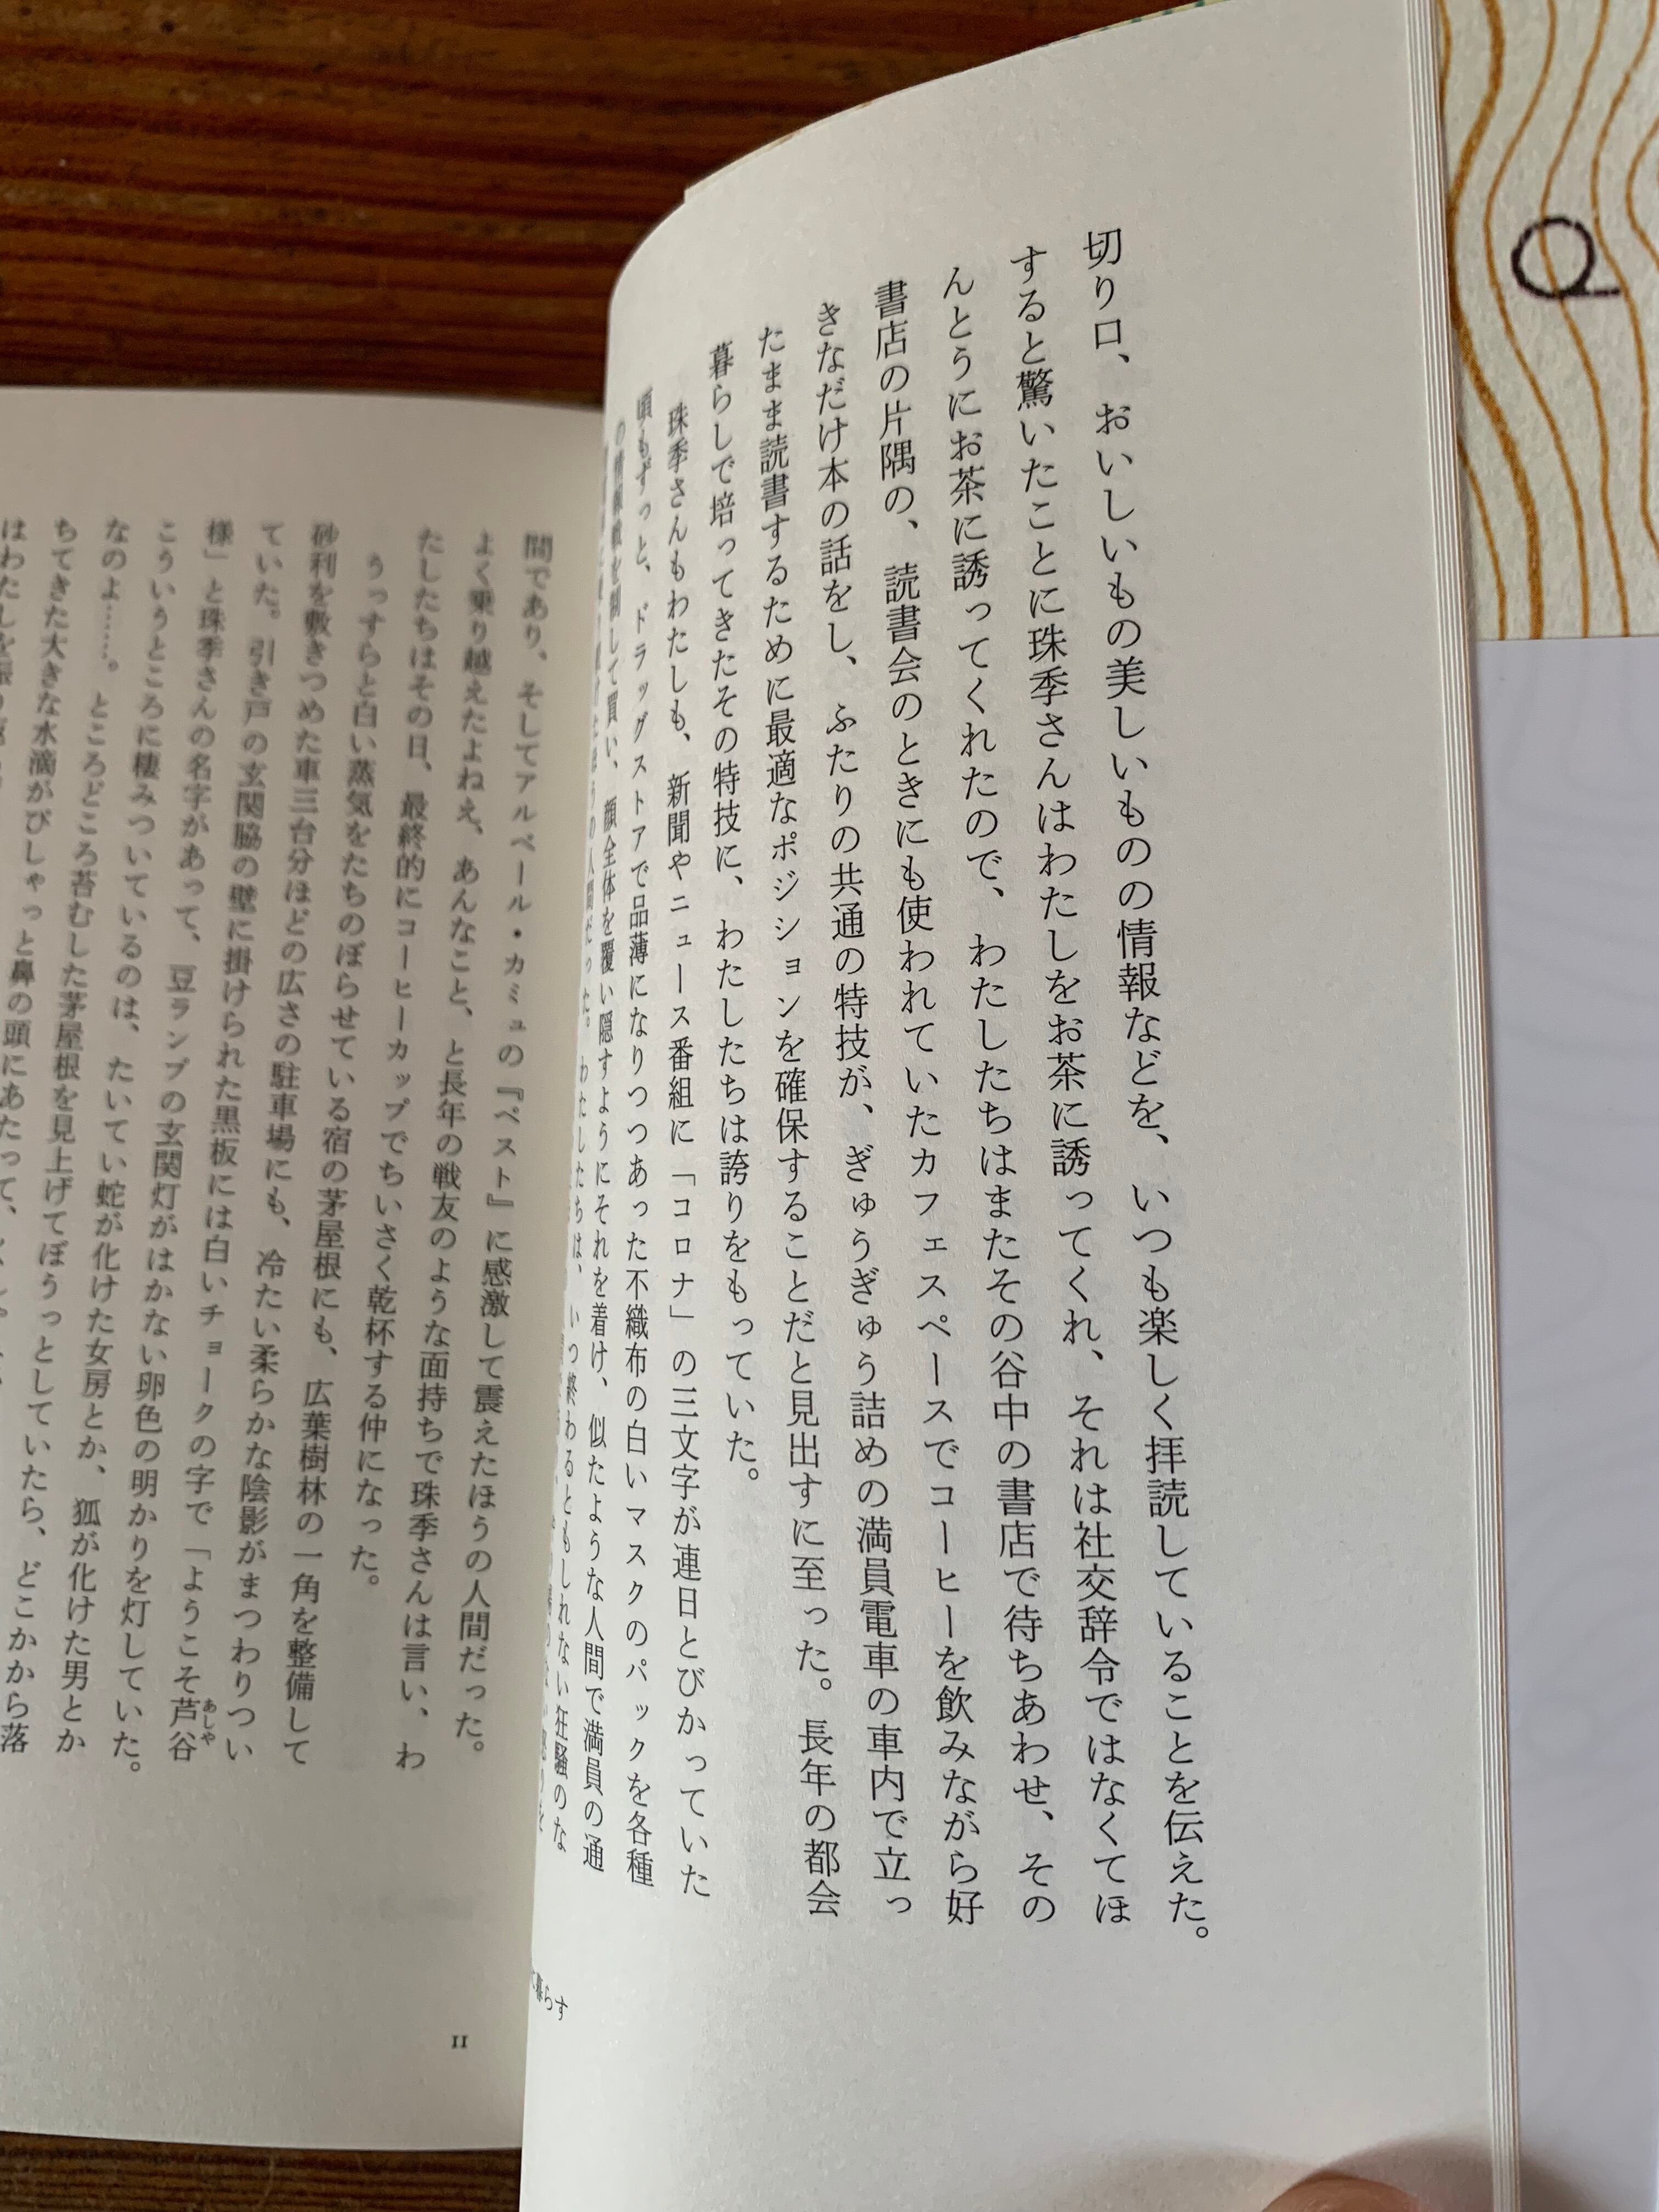 切り口、おいしいもの美しいものの情報などを、いつも楽しく拝読していることを伝えた。
すると驚いたことに珠季さんはわたしをお茶に誘ってくれ、それは社交辞令ではなくてほ
んとうにお茶に誘ってくれたので、わたしたちはまたその谷中の書店で待ちあわせ、その
書店の片隅の、読書会のときにも使われていたカフェスペースでコーヒーを飲みながら好
きなだけ本の話をし、ふたりの共通の特技が、ぎゅうぎゅう詰めの満員電車の車内で立っ
たまま読書するために最適なポジションを確保することだと見出すに至った。長年の都会
暮らしで培ってきたその特技に、わたしたちは誇りをもっていた。
珠季さんもわたしも、新聞やニュース番組に「コロナ」の三文字が連日とびかっていた
頃もずっと、ドラッグストアで品薄になりつつあった不織布の白いマスクのパックを各種
の情報戦を制して買い、顔全体を覆い隠すようにそれを着け、似たような人間で満員の通
人間だった。わたしたちは、いつ終わるともしれない狂騒のな
て暮らす
間であり、そしてアルベール・カミュの『ペスト』に感激して震えたほうの人間だった。
よく乗り越えたよねえ、あんなこと、と長年の戦友のような面持ちで珠季さんは言い、わ
たしたちはその日、最終的にコーヒーカップでちいさく乾杯する仲になった。
うっすらと白い蒸気をたちのぼらせている宿の茅屋根にも、広葉樹林の一角を整備して
砂利を敷きつめた車三台分ほどの広さの駐車場にも、冷たい柔らかな陰影がまつわりつい
ていた。引き戸の玄関脇の壁に掛けられた黒板には白いチョークの字で「ようこそ芦谷あしや
様」と珠季さんの名字があって、豆ランプの玄関灯がはかない卵色の明かりを灯していた。
こういうところに棲みついているのは、たいてい蛇が化けた女房とか、狐が化けた男とか
なのよ……。ところどころ苔むした茅屋根を見上げてぼうっとしていたら、どこかから落
ちてきた大きな水滴がぴしゃっと鼻の頭にあたって、
はわたしを
11